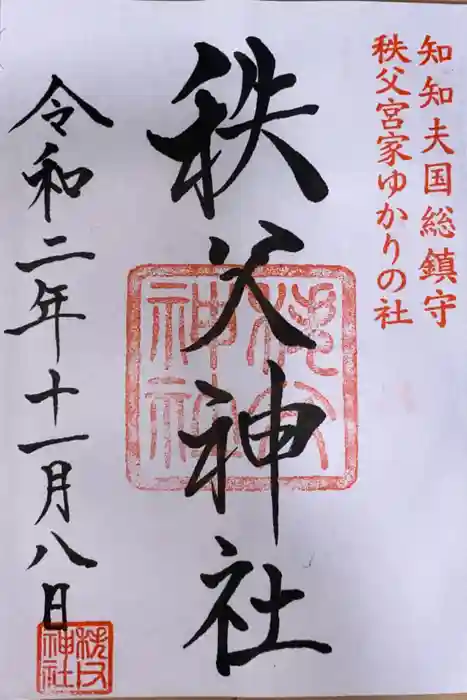 知知夫国総鎮守
秩父宮家ゆかりの社
秩父神社
秩父神社
令和二年十一月八日
秩父神社